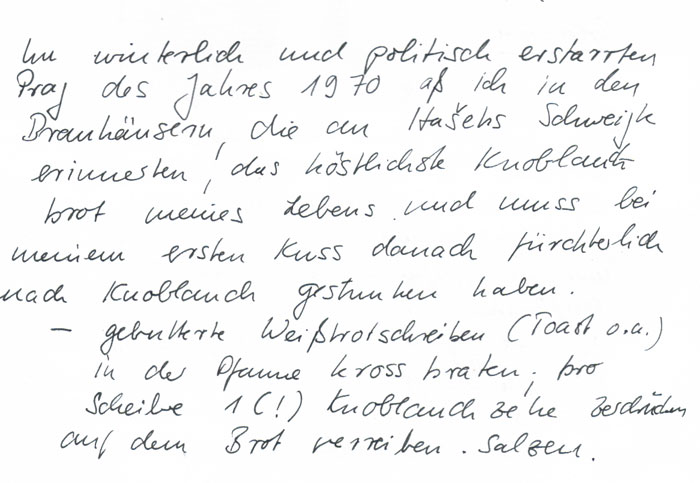 Im winterlich und politisch erstarrten
Prag des Jahres 1970 aß ich in den
Brauhäusern, die an Hašeks Schwejk
erinnerten, das köstlichste Knoblauch
brot meines Lebens und muss bei
meinem ersten Kuss danach fürchterlich
nach Knoblauch gestunken haben.
— gebutterte Weißbrotschreiben (Toast o.a.)
in der Pfanne kross braten, pro
Scheibe 1 (!) Knoblauchzehe zerdrücken
auf dem Brot verreiben. Salzen.